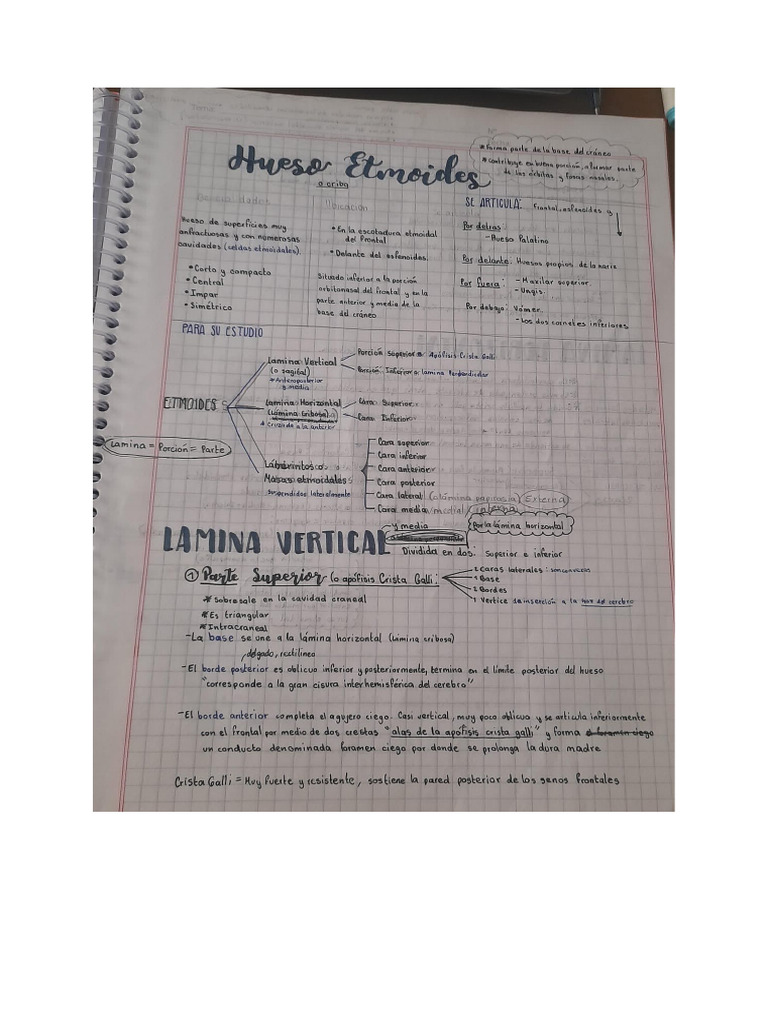 Hueso Etmoides
o criba
* Forma parte de la base del cráneo
* contribuye en buena porción, a formar parte
de las órbitas y fosas nasales.
Hueso de superficies muy
anfractuosas y con numerosas
cavidades (celdas etmoidales).
• Corto y compacto
• Central
• Impar
• Simétrico
Ubicación
• En la escotadura etmoidal
del Frontal
• Delante del esfenoides.
Situado inferior a la porción
orbitonasal del frontal y en la
parte anterior y media de la
base del cráneo.
SE ARTICULA: Frontal, esfenoides y
Por detras:
- Hueso Palatino
Por delante: Huesos propios de la nariz
Por fuera: - Maxilar superior.
- Ungis.
Por debajo: Vómer.
- Los dos cornetes inferiores
PARA SU ESTUDIO
ETMOIDES
Lamina Vertical
(o sagital)
* Anteroposterior
y media
Porción Superior: Apófisis Crista Galli
Porción Inferior: lamina Perpendicular
Lamina Horizontal
(Lámina Cribosa)
* Cruzando a la anterior
Cara Superior
Cara Inferior
Lamina = Porción = Parte
Laberintos o
Masas etmoidales
suspendidos lateralmente
Cara superior
Cara inferior
Cara anterior
Cara posterior
Cara lateral (o lámina papirácea) Externa
Cara media/medial/interna
LAMINA VERTICAL
y media
Por la lámina horizontal
Dividida en dos. Superior e inferior
① Parte Superior (o apófisis Crista Galli:
2 Caras laterales: son convexas
1 Base
2 Bordes
1 Vertice da inserción a la hoz del cerebro
* Sobresale en la cavidad craneal
* Es triangular
* Intracraneal
- La base se une a la lámina horizontal (Lámina cribosa)
, delgado, rectilíneo
- El borde posterior es oblicuo inferior y posteriormente, termina en el límite posterior del hueso
"corresponde a la gran cisura interhemisférica del cerebro"
- El borde anterior completa el agujero ciego. Casi vertical, muy poco oblicuo y se articula inferiormente
con el frontal por medio de dos crestas "alas de la apófisis crista galli" y forma o foramin ciego
un conducto denominada foramen ciego por donde se prolonga la dura madre
Crista Galli = Muy fuerte y resistente, sostiene la pared posterior de los senos frontales